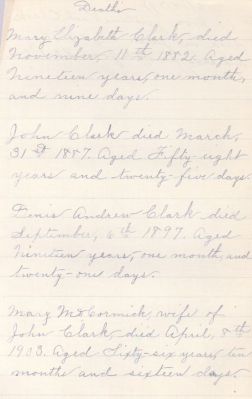 Deaths
Mary Elizabeth Clark, died
November, 11th 1882. Aged
Nineteen years, one month,
and nine days.
John Clark died March,
31st 1887. Aged Fifty-eight
years and twenty-five days.
Denis Andrew Clark died
September, 6th 1897. Aged
Nineteen years, one month, and
twenty-one days.
Mary McCormick, wife of
John Clark, died April, 8th
1903. Aged Sixty-six years, ten
months and sixteen days.